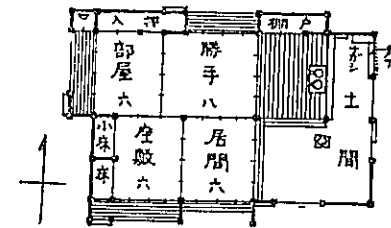 入押
戸棚
部屋
六
勝手
八
土間
小床
床
座敷
六
居間
六